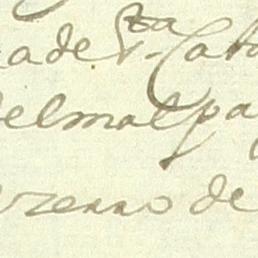 a de S.ta Cata
del mal pa
zerro de